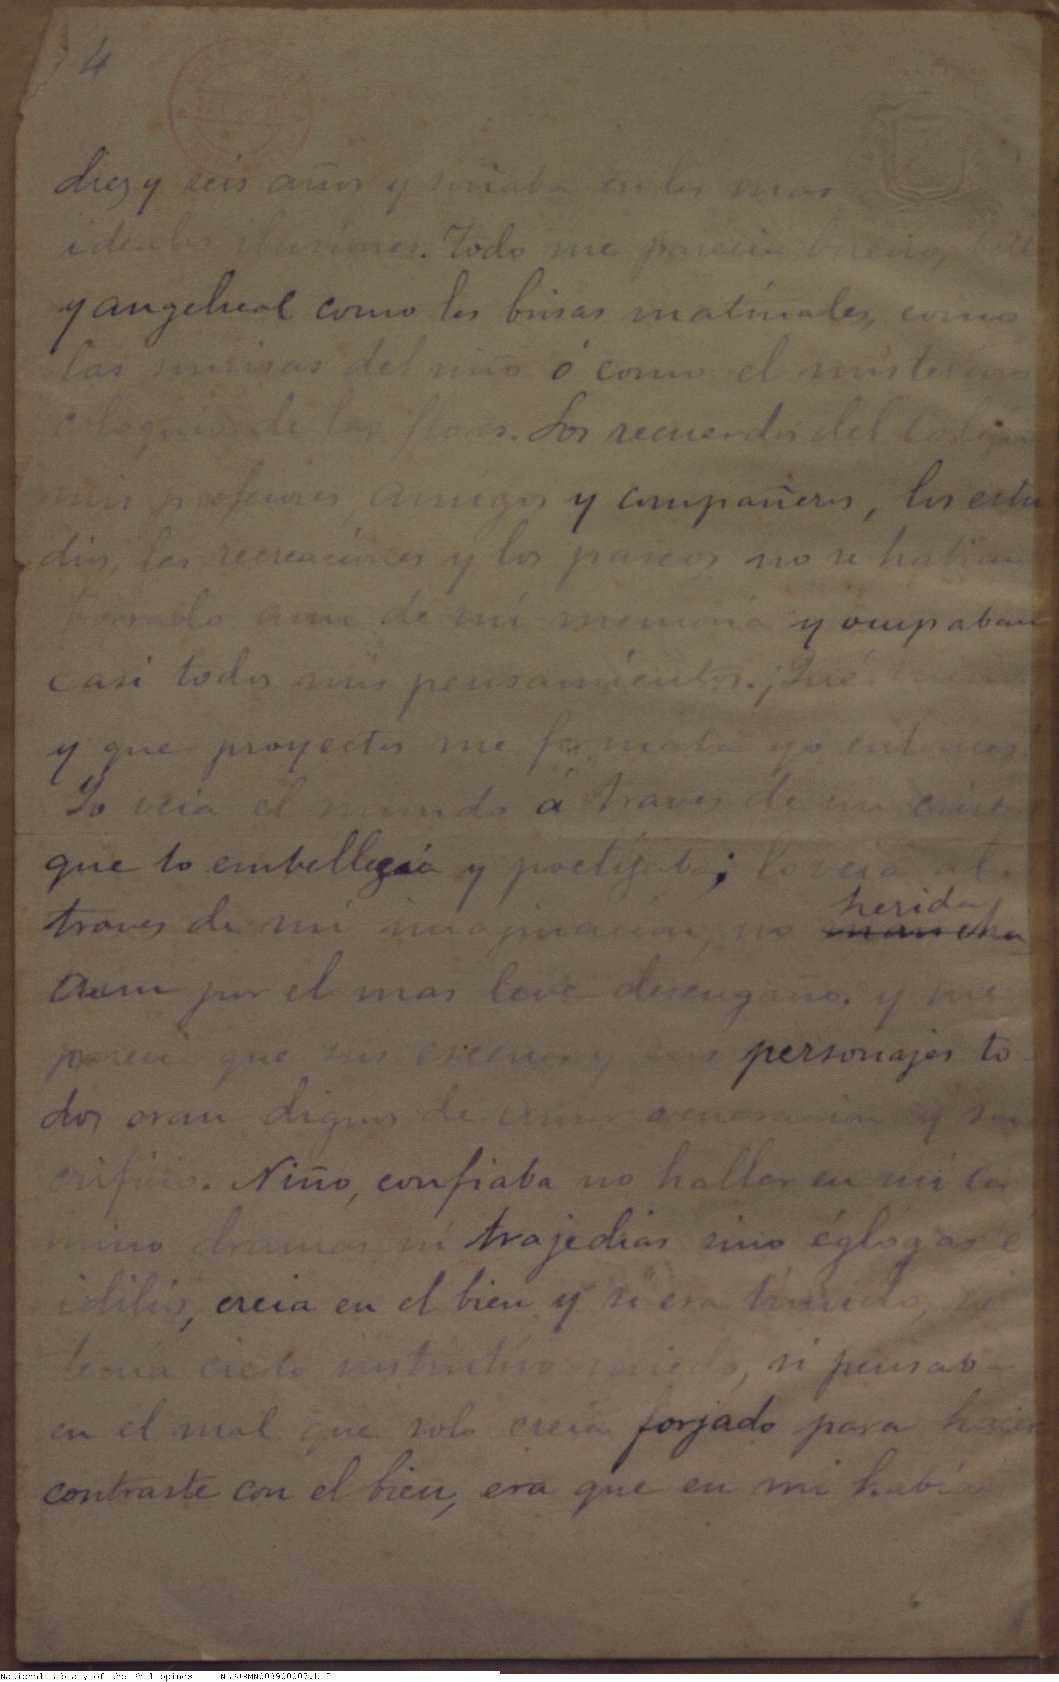 4
diez y seis años y soñaba en las mas
ideales ilusiones. Todo me parecia bueno,
y angelical como las brisas matinales, como
las sonrisas del niño ó como el misterioso
coloquio de las flores. Los recuerdos del Colegio
mis profesores, amigos y compañeros, los estu
dios, las recreaciones y los paseos no se habian
borrado aun de mi memoria y ocupaban
casi todos mis pensamientos. ¡Qué
y que proyectos me formaba yo entonces!
Yo veia el mundo á traves de un
que lo embellecia y poetizaba; lo veia al
traves de mi imaginacion, no herida
aum por el mas leve desengaño, y me
parecia que sus escenas y sus personajes to-
dos eran dignos de veneracion y sa
crificio. Niño, confiaba no hallar en mi ca
mino dramas ni trajedias sino églogas é
idilios, creia en el bien y si era timido, si
tenia cierto instintivo miedo, si pensaba
en el mal que solo creia forjado para hacer
contraste con el bien, era que en mi habia
National Library of the Philippines